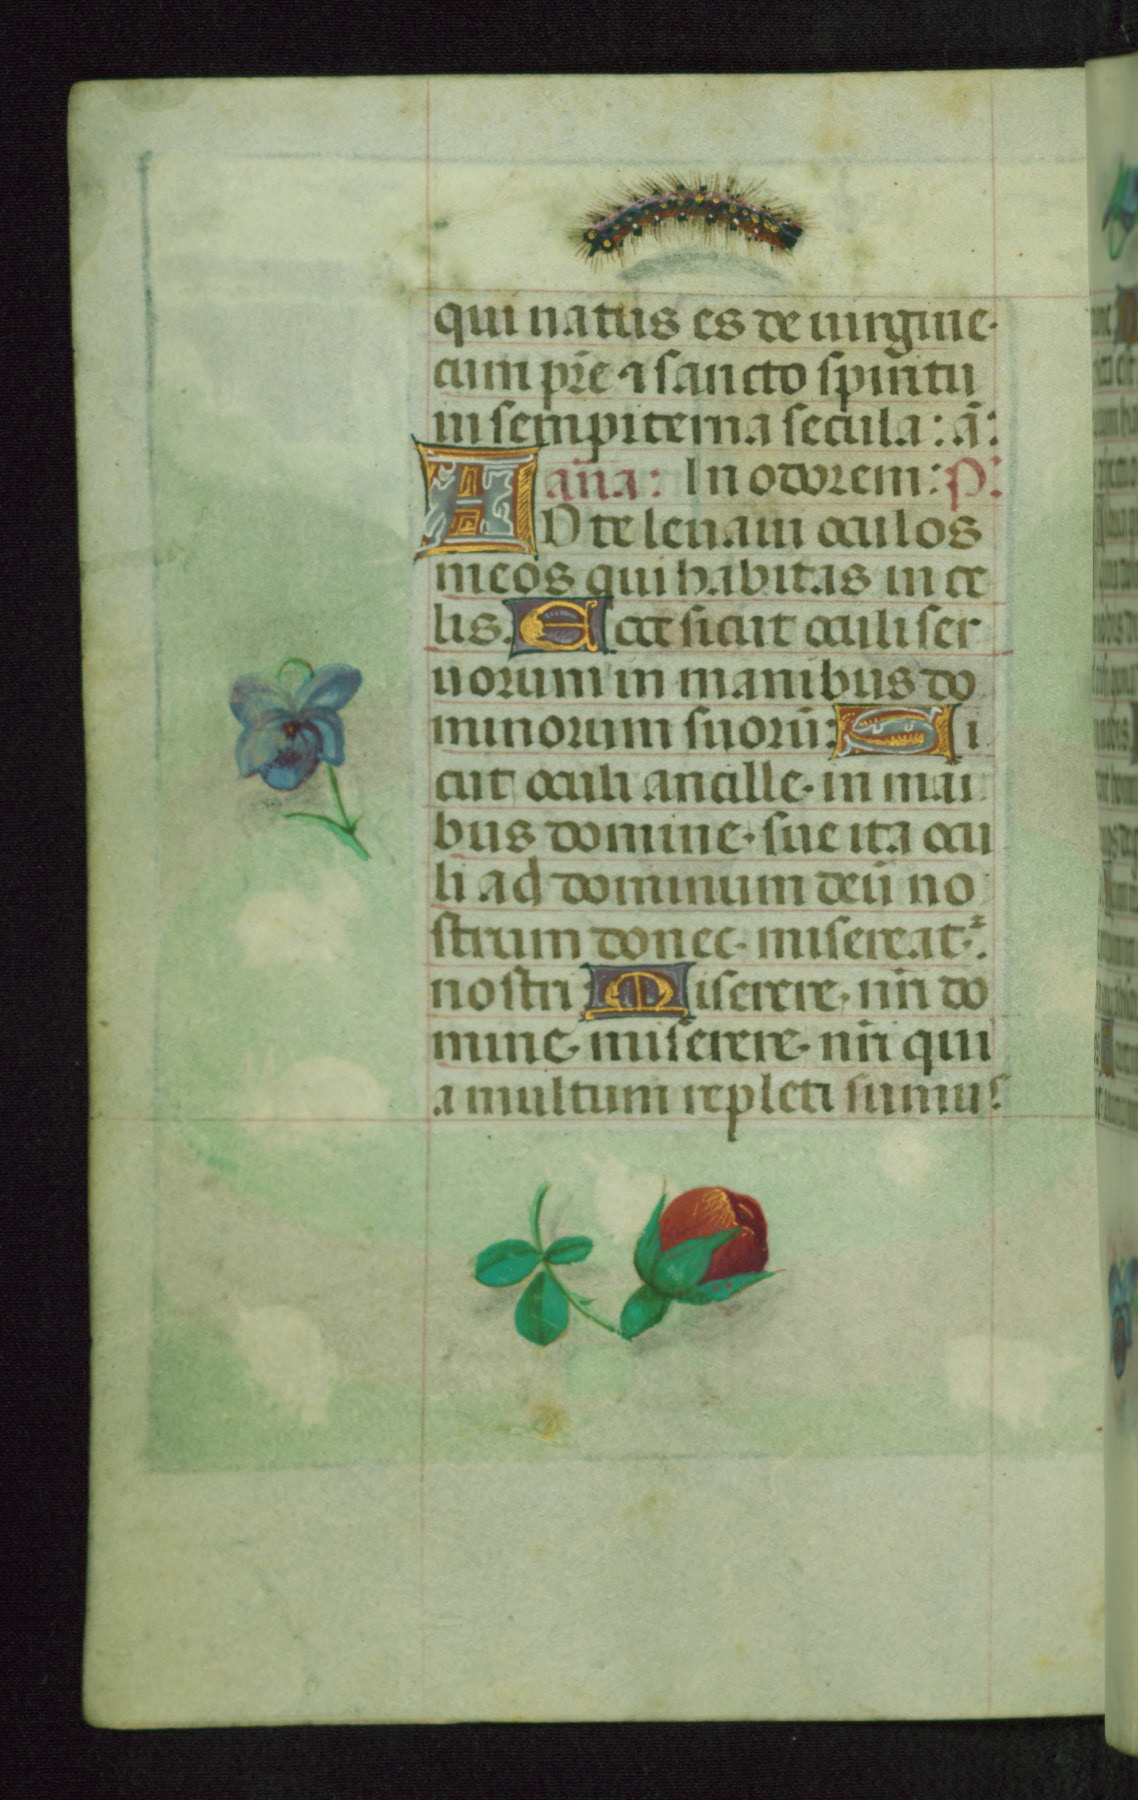 qui natus es de uirgine.
cum pr̄e ⁊ sancto spiritu
in sempiterna secula: a̅:
an̄a: In odorem: P:
AD te leuaui oculos
meos qui habitas in ce
lis. Ecce sicut oculi ser
uorum in manibus do
minorum suorū: Si
cut oculi ancille. in mai
bus domine. sue ita ocu
li ad dominum deū no
strum donec. misereat᷑.
nostri Miserere. nr̄i do
mine. miserere. nr̄i qui
a multum repleti sumus